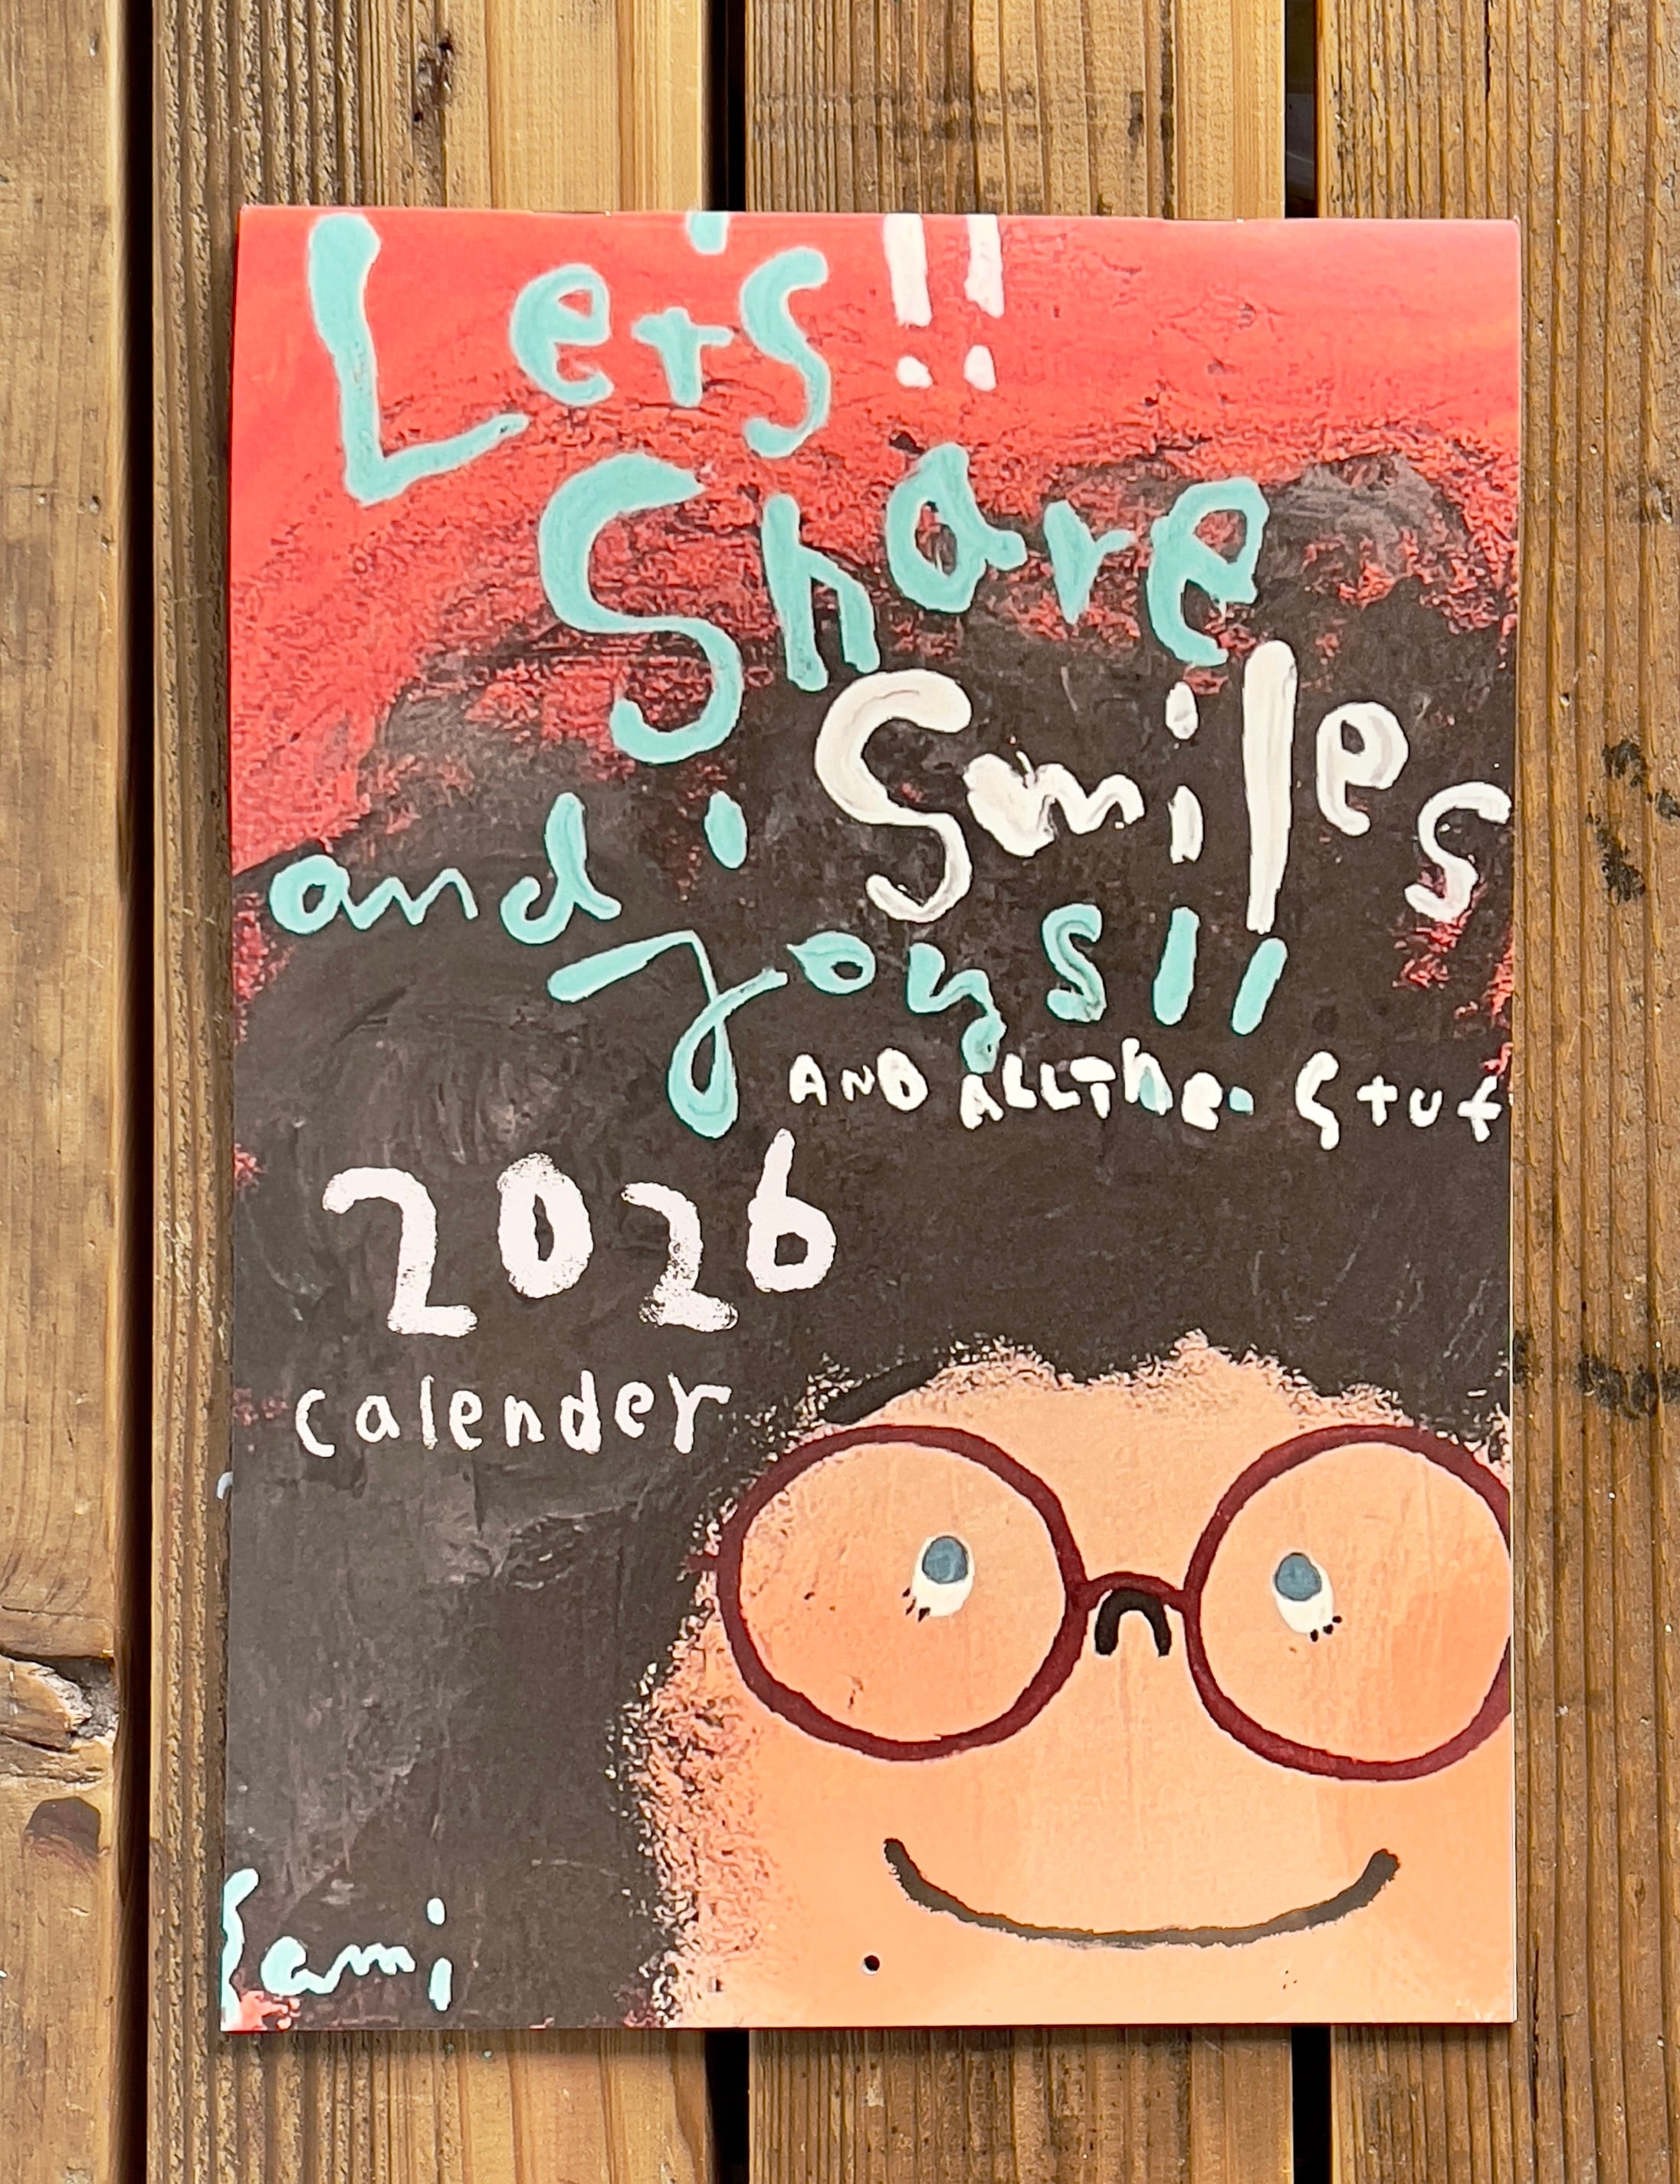 Let's!!
Share
Smiles
and joys!!
AND ALL THe Stuf
2026
calender
Sami